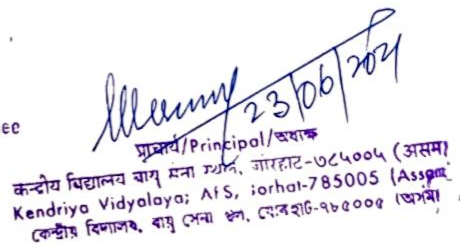 ee
23/06/2021
प्राचार्य/Principal/অধ্যক্ষ
केन्द्रीय विद्यालय वायु सेना स्थान, जोरहाट-७८५००५ (असम)
Kendriya Vidyalaya; AFS, jorhat-785005 (Assam)
কেন্দ্ৰীয় বিদ্যালয়, বায়ু সেনা